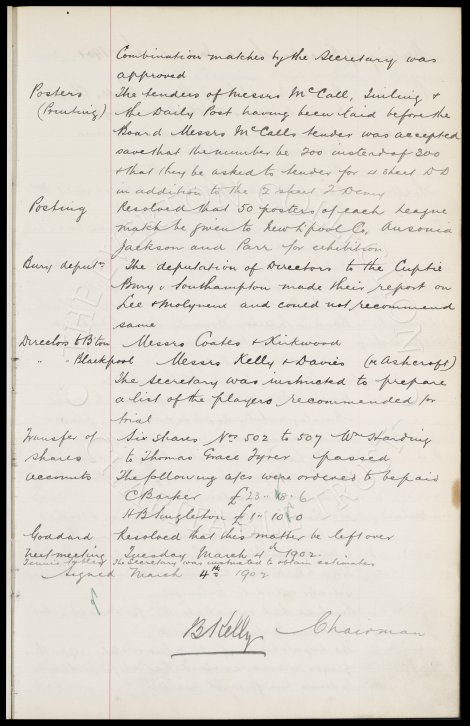 Combination matches by the Secretary was
approved
Posters The tenders of Messrs McCall, Tinling &
(Printing) the Daily Post having been laid before the
Board Messrs McCalls tender was accepted
save that the number be 200 instead of 300
& that they be asked to tender for 4 sheet DD
in addition to the 2 sheet 2 Demy
Posting Resolved that 50 posters of each League
match be given to New Lpool Co, Ausonia
Jackson and Parr for exhibition
Bury deput'n The deputation of Directors to the Cuptie
Bury v Southampton made their report on
Lee & Molyneux and could not recommend
same
Directors to B'ton Messrs Coates & Kirkwood
" " Blackpool Messrs Kelly & Davies (re Ashcroft)
The Secretary was instructed to prepare
a list of the players recommended for
trial
Transfer of Six shares Nos. 502 to 507 Wm Harding
shares to Thomas Grace Tyrer passed
accounts The following a/cs were ordered to be paid
C Barker £23 - 18 - 6
H B Singleton £1 - 10 - 0
Goddard Resolved that this matter be left over
Next meeting Tuesday March 4th 1902.
The Secretary was instructed to obtain estimates
Signed March 4th 1902
B Kelly Chairman